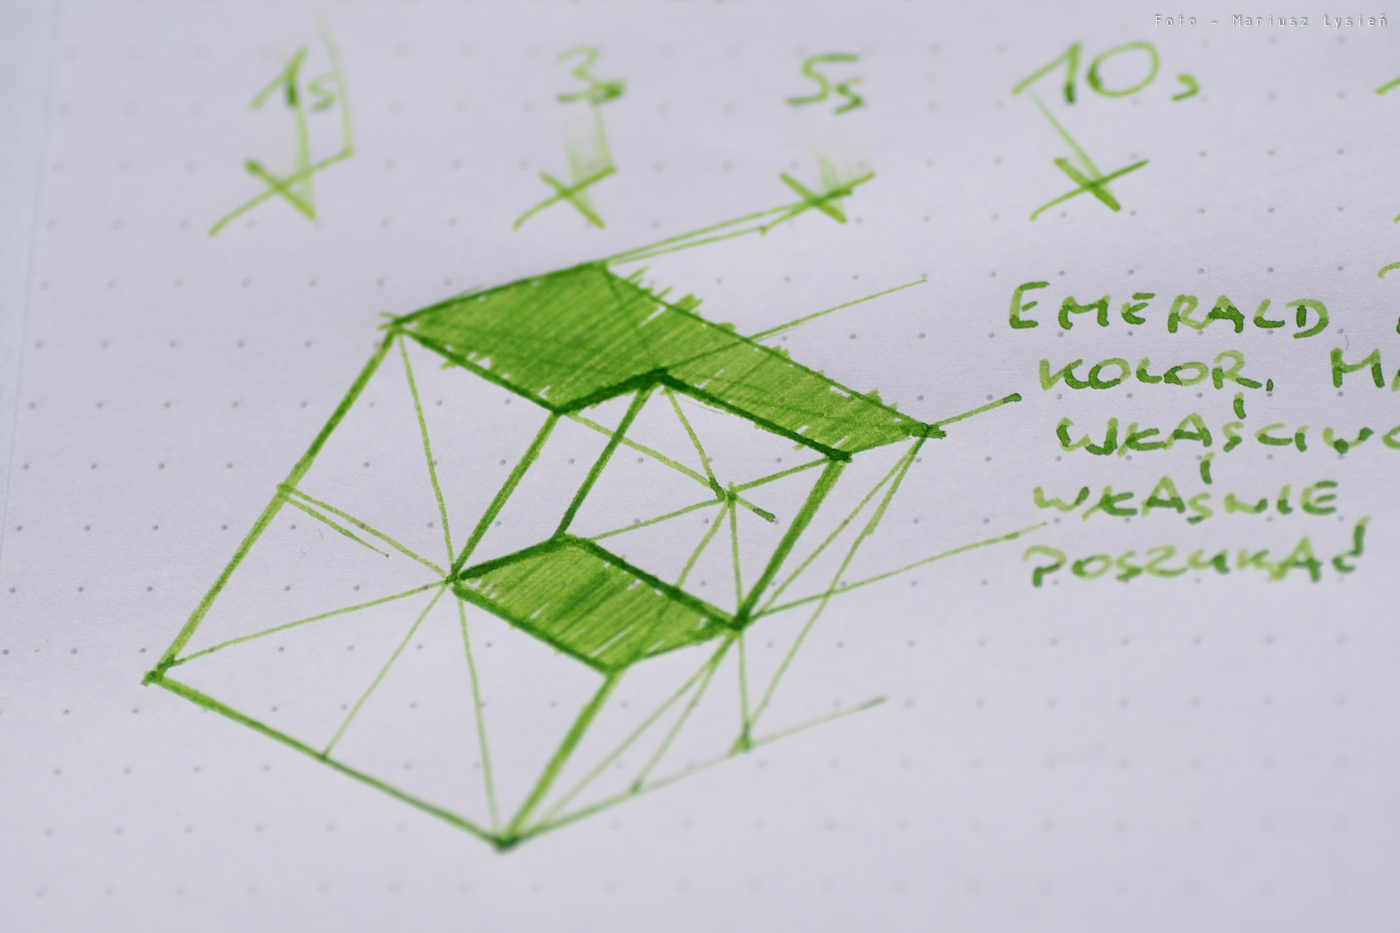 Foto - Mariusz Łysień
1s 3s 5s 10s
EMERALD
KOLOR, MA
WŁAŚCIWO
WŁAŚNIE
POSZUKAĆ